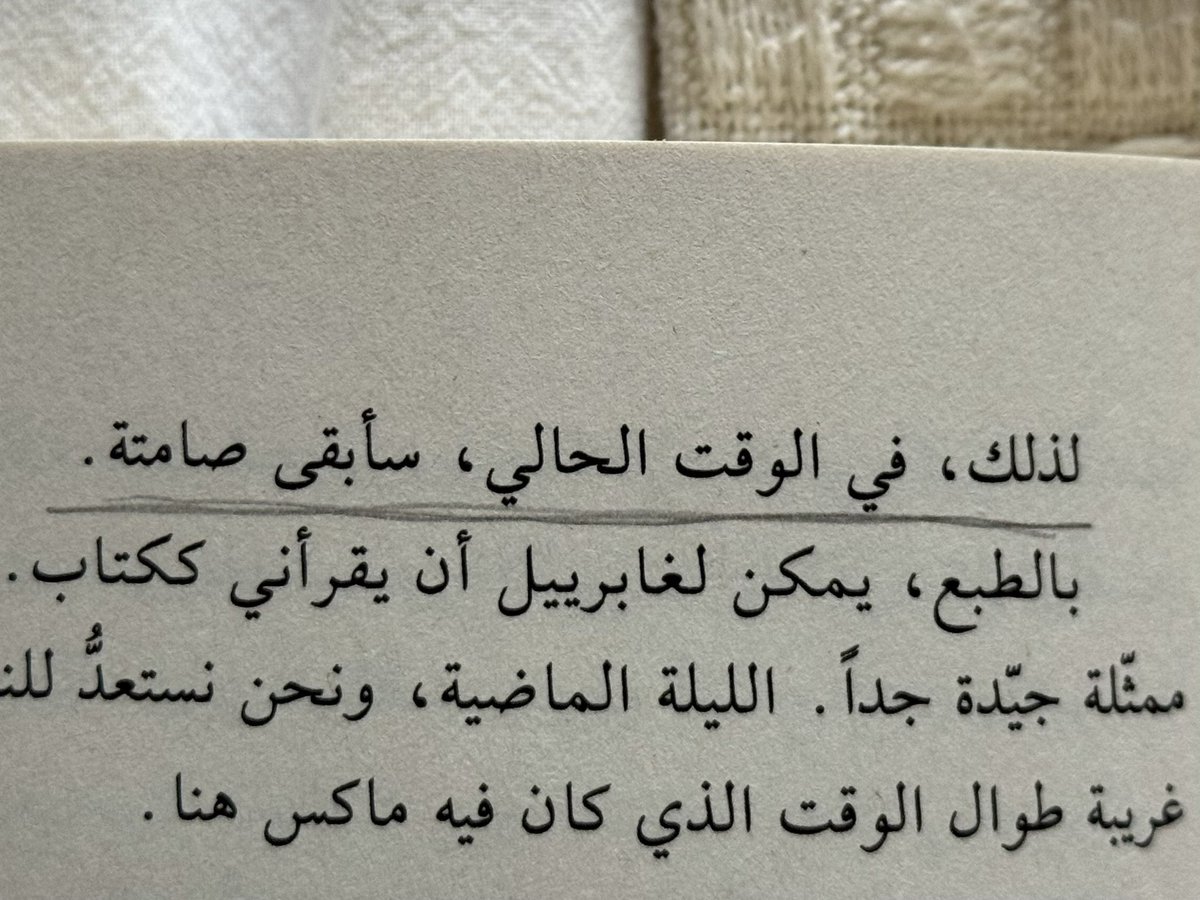 لذلك، في الوقت الحالي، سأبقى صامتة.
بالطبع، يمكن لغابرييل أن يقرأني ككتاب.
ممثّلة جيّدة جداً. الليلة الماضية، ونحن نستعدُّ
غريبة طوال الوقت الذي كان فيه ماكس هنا.